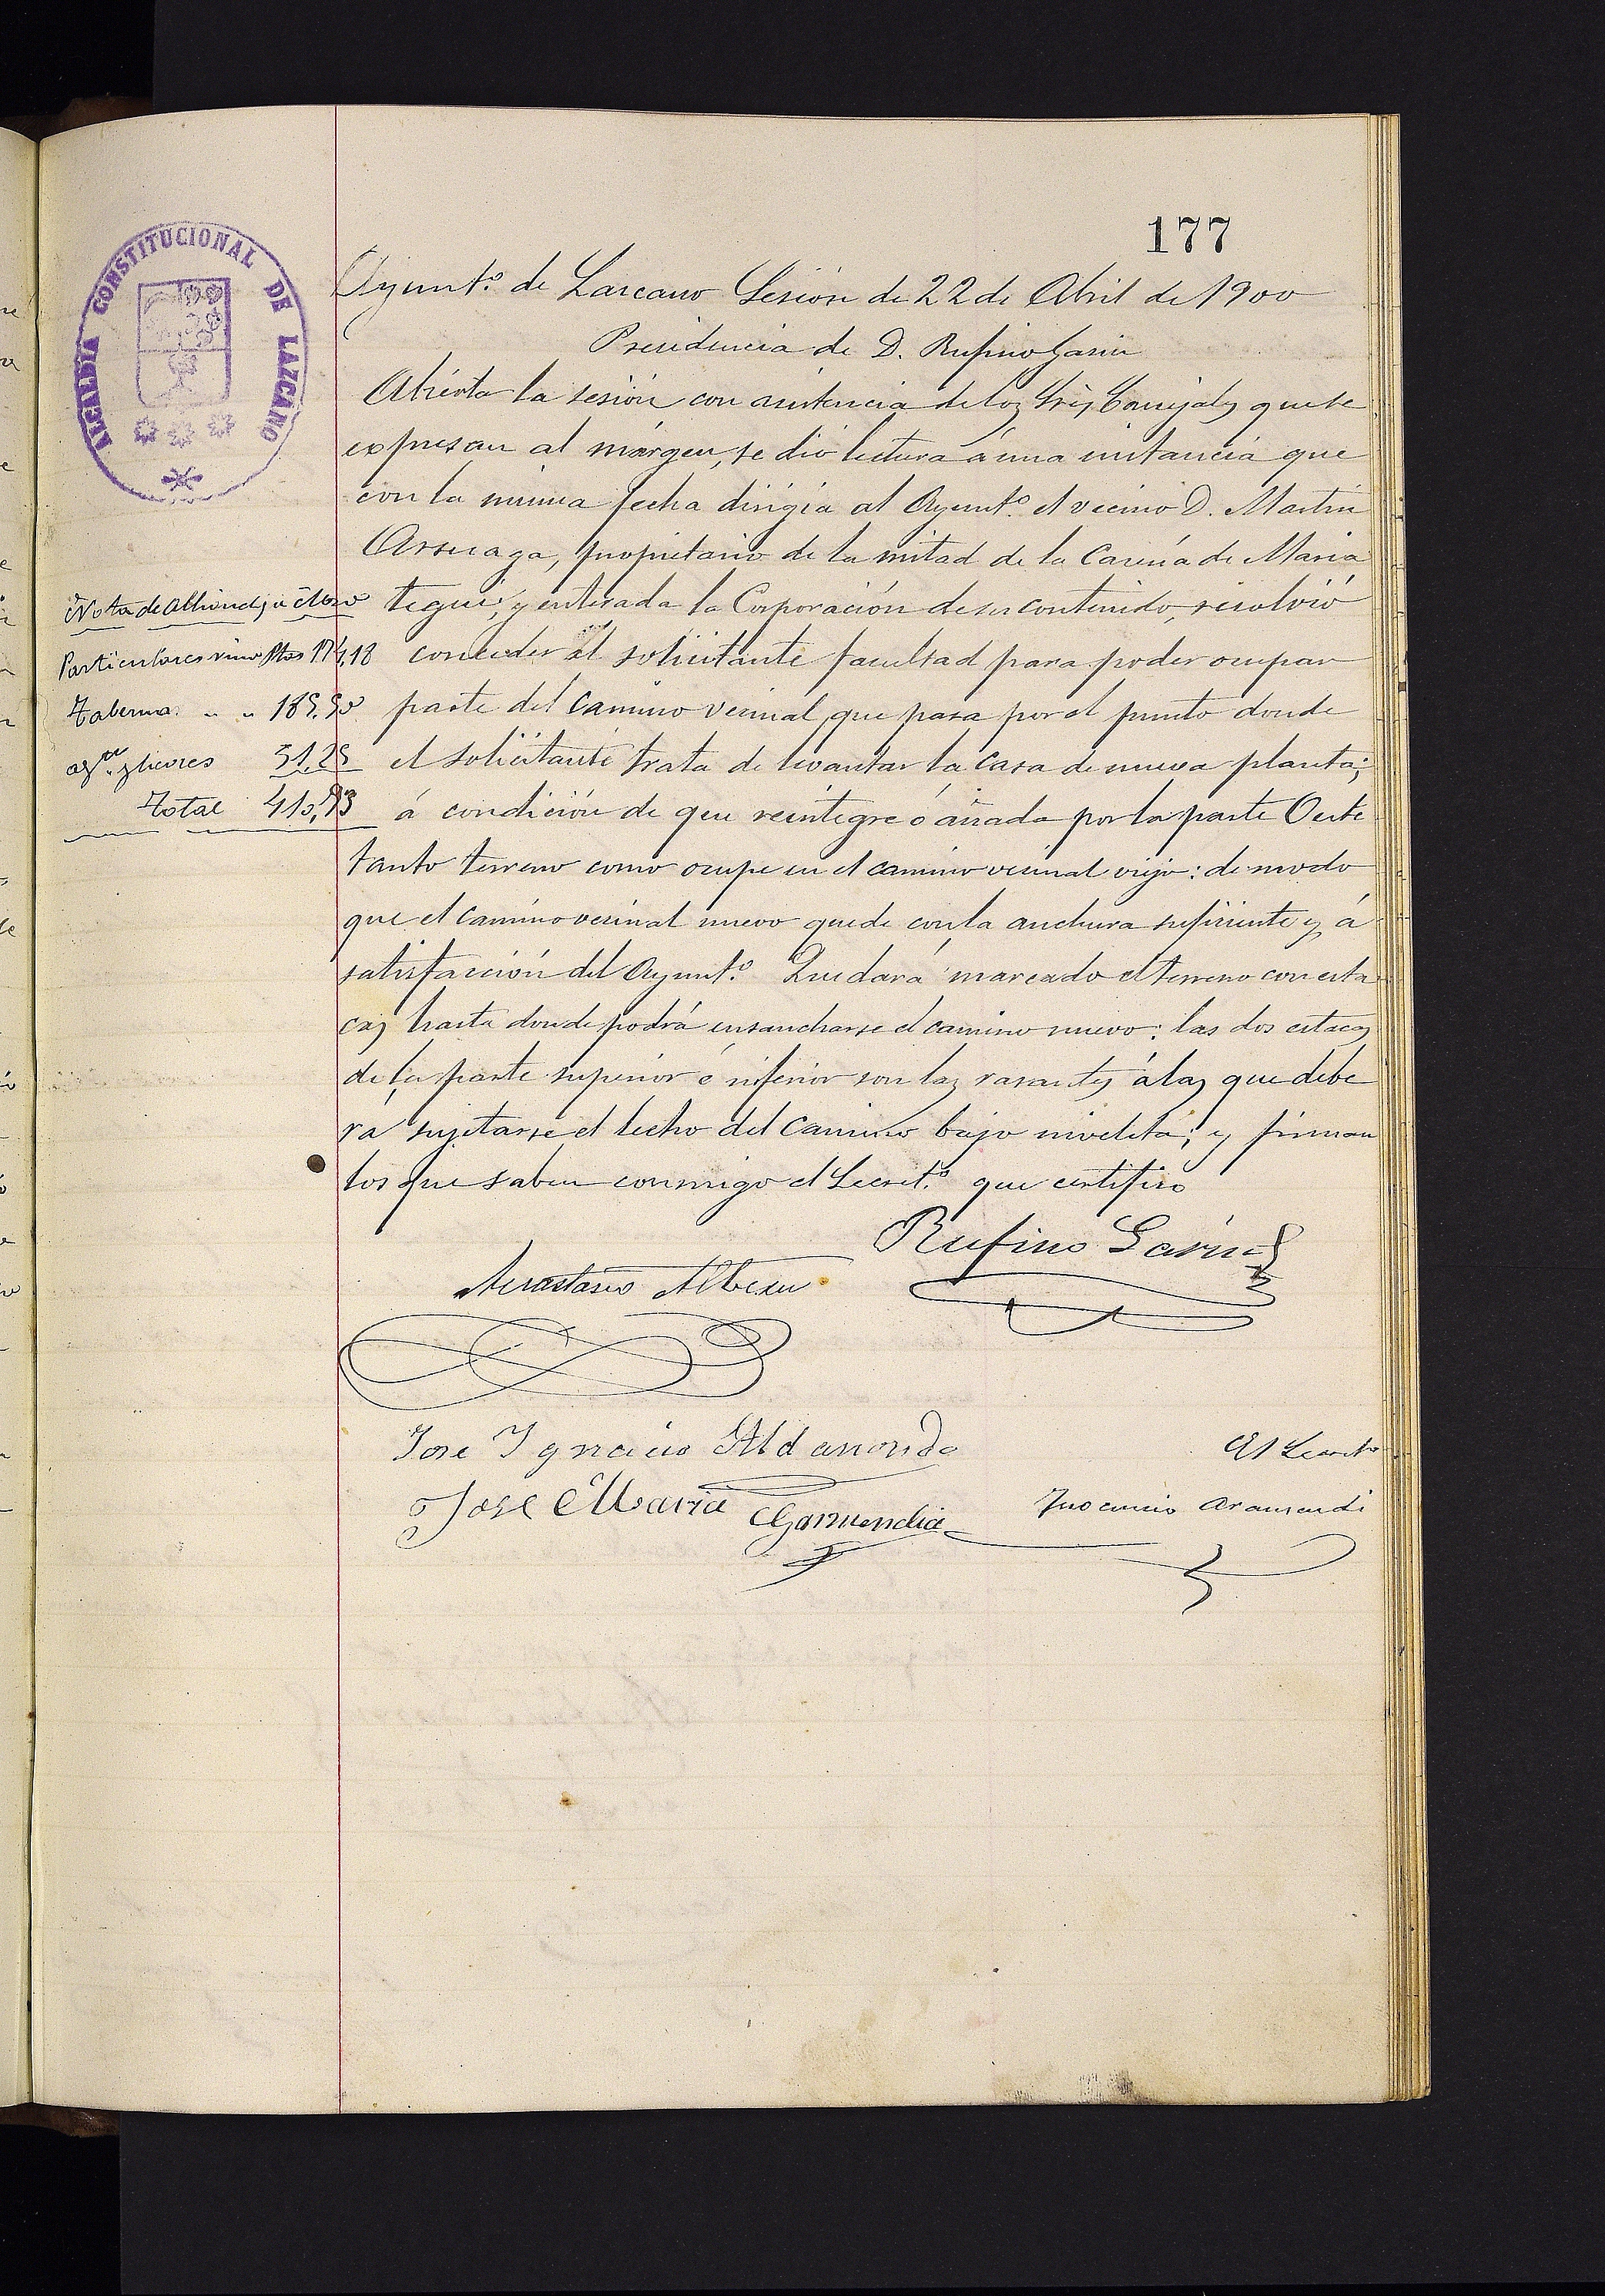 177
ALCALDIA CONSTITUCIONAL DE LAZCANO
Ayunt.º de Lazcano Sesión de 22 de Abril de 1900
Presidencia de D. Rufino Garin
Abierta la sesión con asistencia de los Srs Concejales que se
expresan al márgen, se dió lectura á una instancia que
con la misma fecha dirigía al Ayunt.º el vecino D. Martin
Arsuaga, propietario de la mitad de la Caseria de Maria
tegui, y enterada la Corporación de su contenido, resolvió
conceder al solicitante facultad para poder ocupar
parte del camino vecinal, que pasa por el punto donde
el solicitante trata de levantar la casa de nueva planta;
á condición de que reintegre ó añada por la parte Oeste
tanto terreno como ocupe en el camino vecinal viejo: de modo
que el camino vecinal nuevo quede con la anchura suficiente y á
satisfacción del Ayunt.º Quedará marcado el terreno con esta
cas hasta donde podrá ensancharse el camino nuevo: las dos estacas
de la parte superior é inferior son las rasantes á las que debe
rá sujetarse el lecho del camino bajo niveleta; y firman
los que saben conmigo el Secret.º que certifico
Nota de Alhondiga Marzo
Particulares vino Ptas 174,18
Taberna " " 185,50
ag.te y licores 51,25
Total 410,93
Rufino Garin
Anastasio Alberdi
Jose Ignacio Aldasoro
El Secret.º
Jose Maria Garmendia
Inocencio Aramendi